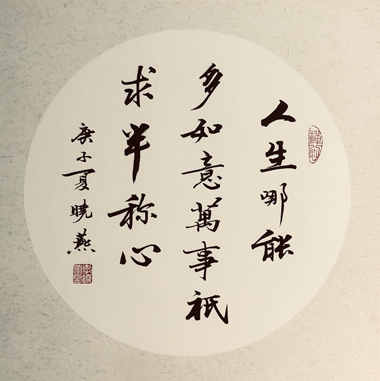 人生哪能
多如意萬事祇
求半称心
庚子夏曉燕